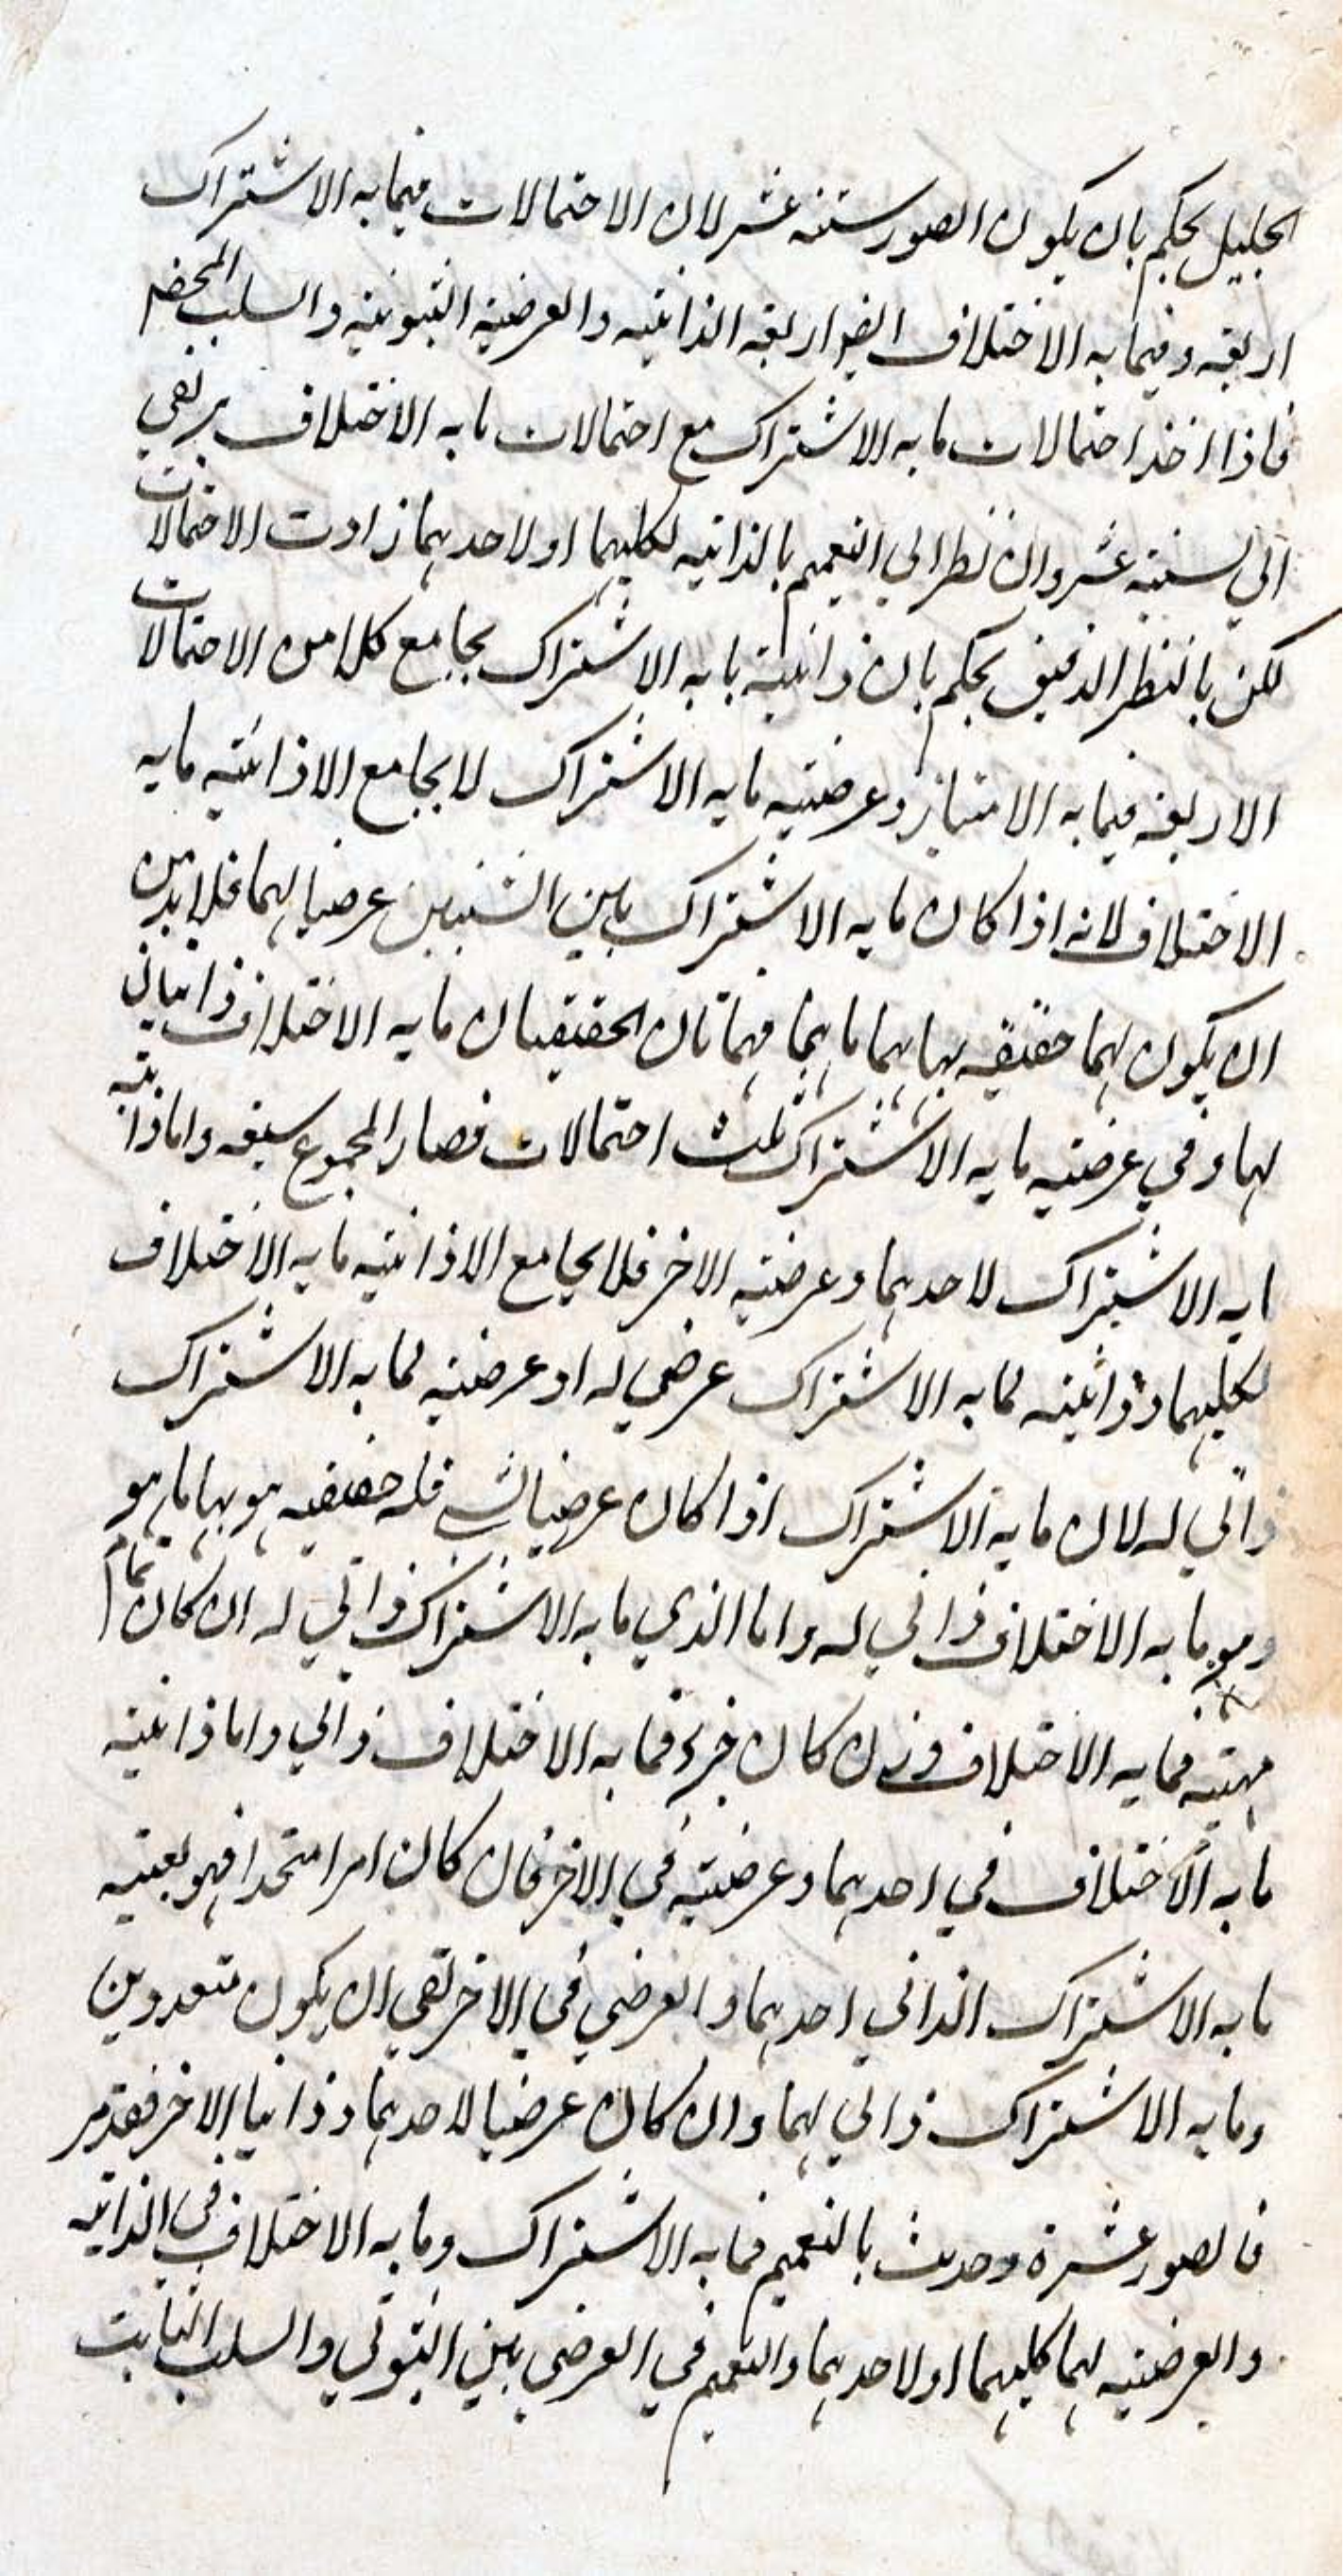 الجليل يحكم بان يكون الصور ستة عشر لان الاحتمالات فيما به الاشتراك
اربعة وفيما به الاختلاف ايضا اربعة الذاتية والعرضية الثبوتية والسلب المحض
فاذا اخذ احتمالات ما به الاشتراك مع احتمالات ما به الاختلاف يرتقي
الي ستة عشر وان نظر الي التعميم بالذاتية لكليهما او لاحدهما زادت الاحتمالات
لكن بالنظر الدقيق يحكم بان ذاتية ما به الاشتراك يجامع كلا من الاحتمالات
الاربعة فيما به الامتياز وعرضية ما به الاشتراك لا يجامع الا ذاتية ما به
الاختلاف لانه اذا كان ما به الاشتراك بين الشيئين عرضيا لهما فلا بد من
ان يكون لهما حقيقة بها هما ما هما فهاتان الحقيقتان ما به الاختلاف ذاتيان
لهما وفي عرضية ما به الاشتراك ثلث احتمالات فصار المجموع سبعة واما ذاتية
ما به الاشتراك لاحدهما وعرضية الاخر فلا يجامع الا ذاتية ما به الاختلاف
لكليهما وذاتية لما به الاشتراك عرضي له او عرضية لما به الاشتراك
ذاتي له لان ما به الاشتراك اذا كان عرضيا لشي فله حقيقة هو بها ما هو
وهو ما به الاختلاف ذاتي له واما الذي ما به الاشتراك ذاتي له ان كان تمام
مهيته فما به الاختلاف وان كان جزء فما به الاختلاف ذاتي واما ذاتية
ما به الاختلاف في احدهما وعرضية في الاخر فان كان امرا متحدا فهو بعينه
ما به الاشتراك الذاتي احدهما والعرضي في الاخر بقي ان يكون متعددين
وما به الاشتراك ذاتي لهما وان كان عرضيا لاحدهما وذاتيا الاخر فقد مر
فالصور عشرة وحدث بالتعميم فما به الاشتراك وما به الاختلاف في الذاتية
والعرضية لهما كليهما او لاحدهما والتعميم في العرضي بين الثبوتي والسلب الثابت